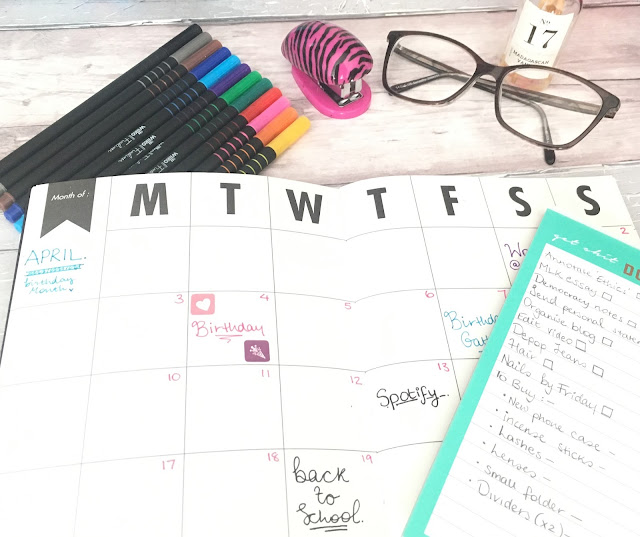 No
17
MADAGASCAN
Month of :
M T W T F S S
APRIL.
birthday
Month
2
3
4
5
6
7
Birthday
Birthday
10
11
12
13
Spotify
17
18
19
back
to
school.
get shit
Annotate Ethics
MLK essay
Democracy notes
Send personal
Organise blog
Edit video
Depop Jeans
Hair
Nails by Friday
To Buy :-
• New phone case -
• incense sticks -
• Lashes -
• Lenses -
• small folder -
• Dividers (x2) -